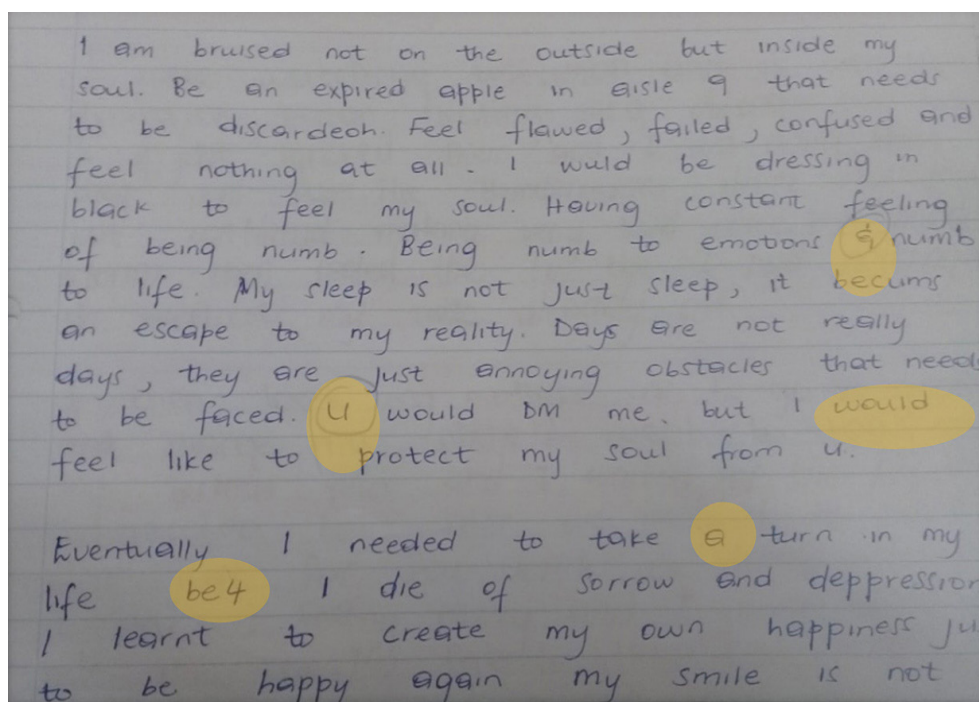 I am bruised not on the outside but inside my
soul. Be an expired apple in aisle 9 that needs
to be discardeoh. Feel flawed, failed, confused and
feel nothing at all. I wuld be dressing in
black to feel my soul. Having constant feeling
of being numb. Being numb to emotions & numb
to life. My sleep is not just sleep, it becums
an escape to my reality. Days are not really
days, they are just annoying obstacles that needs
to be faced. U would DM me. but I would
feel like to protect my soul from u.
Eventually I needed to take a turn in my
life be4 I die of sorrow and deppression
I learnt to create my own happiness ju
to be happy again my smile is not